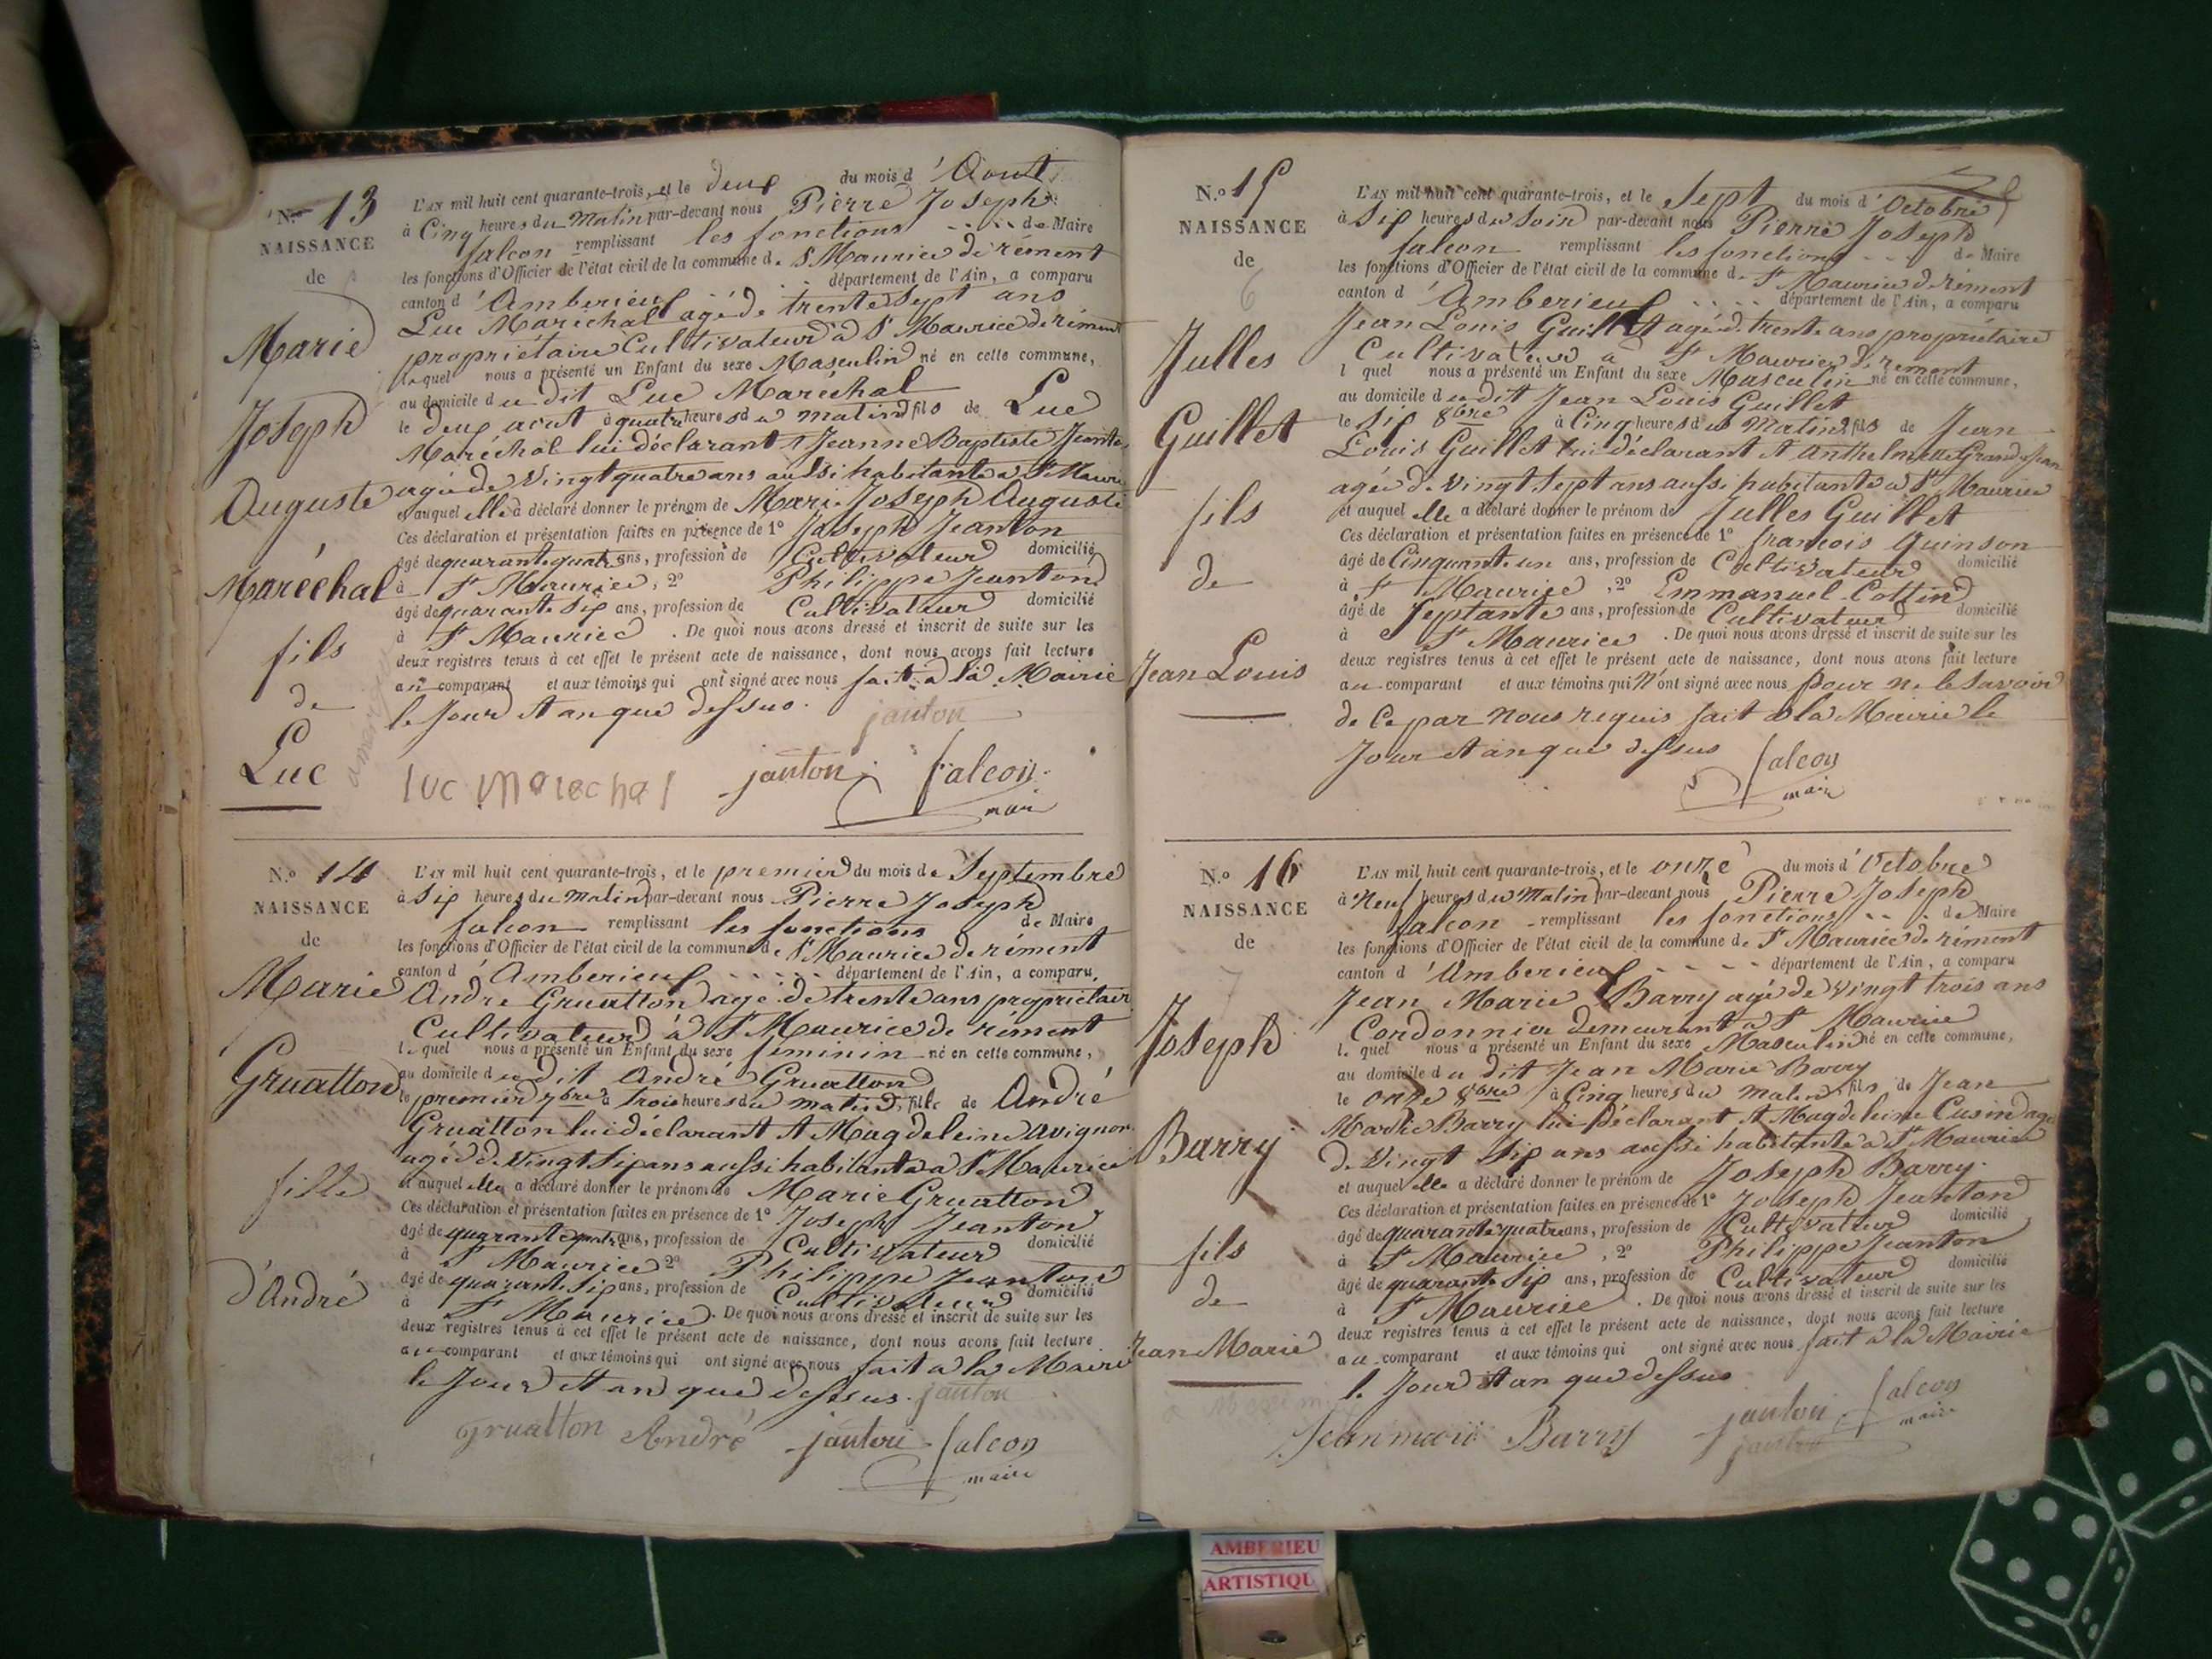 N.° 13
NAISSANCE
de
Marie
Joseph
Auguste
Maréchal
fils
de
Luc
L'AN mil huit cent quarante-trois, et le deux du mois d'Aout
à Cinq heures du Matin par-devant nous Pierre Joseph
falcon remplissant les fonctions de Maire
les fonctions d'Officier de l'état civil de la commune de St Maurice de rément
canton d'Amberieux département de l'Ain, a comparu
Luc Maréchal agé de trente Sept ans
propriétaire Cultivateur à St Maurice de rément
lequel nous a présenté un Enfant du sexe Masculin né en cette commune,
au domicile du dit Luc Maréchal
le deux aout à quatre heures du matin fils de Luc
Maréchal lui déclarant et Jeanne Baptiste
agée de Vingt quatre ans aussi habitante a St Mauri
et auquel elle a déclaré donner le prénom de Marie Joseph Auguste
Ces déclaration et présentation faites en présence de 1° Joseph Jeanton
âgé de quarante quatre ans, profession de Cultivateur domicilié
à St Maurice, 2° Philippe Jeanton
âgé de quarante Six ans, profession de Cultivateur domicilié
à St Maurice. De quoi nous avons dressé et inscrit de suite sur les
deux registres tenus à cet effet le présent acte de naissance, dont nous avons fait lecture
au comparant et aux témoins qui ont signé avec nous fait a la Mairie
le Jour et an que dessus.
janton
luc Marechal janton falcon
maire
N.° 14
NAISSANCE
de
Marie
Gruatton
fille
d'André
L'AN mil huit cent quarante-trois, et le premier du mois de Septembre
à Six heures du Matin par-devant nous Pierre Joseph
falcon remplissant les fonctions de Maire
les fonctions d'Officier de l'état civil de la commune de St Maurice de rément
canton d'Amberieux département de l'Ain, a comparu,
André Gruatton agé de trente ans propriétaire
Cultivateur à St Maurice de rément
lequel nous a présenté un Enfant du sexe féminin né en cette commune,
au domicile du dit André Gruatton
le premier 7bre à trois heures du matin, fille de André
Gruatton lui déclarant et Magdeleine Avignon
agée de Vingt Six ans aussi habitante a St Maurice
et auquel elle a déclaré donner le prénom de Marie Gruatton
Ces déclaration et présentation faites en présence de 1° Joseph Jeanton
âgé de quarante quatre ans, profession de Cultivateur domicilié
à St Maurice 2° Philippe Jeanton
âgé de quarante Six ans, profession de Cultivateur domicilié
à St Maurice. De quoi nous avons dressé et inscrit de suite sur les
deux registres tenus à cet effet le présent acte de naissance, dont nous avons fait lecture
au comparant et aux témoins qui ont signé avec nous fait a la Mairie
le Jour et an que dessus. janton
Gruatton André janton falcon
maire
N.° 15
NAISSANCE
de
6
Julles
Guillet
fils
de
Jean Louis
L'AN mil huit cent quarante-trois, et le Sept du mois d'Octobre
à Six heures du Soir par-devant nous Pierre Joseph
falcon remplissant les fonctions de Maire
les fonctions d'Officier de l'état civil de la commune de St Maurice de rément
canton d'Amberieux département de l'Ain, a comparu
Jean Louis Guillet agé de trente ans propriétaire
Cultivateur a St Maurice de rément
lequel nous a présenté un Enfant du sexe Masculin né en cette commune,
au domicile du dit Jean Louis Guillet
le Six 8bre à Cinq heures du Matin fils de Jean
Louis Guillet lui déclarant et Anthelmette Grand Jean
agée de Vingt Sept ans aussi habitante a St Maurice
et auquel elle a déclaré donner le prénom de Julles Guillet
Ces déclaration et présentation faites en présence de 1° francois Quinson
âgé de Cinquante un ans, profession de Cultivateur domicilié
à St Maurice, 2° Emmanuel Cottin
âgé de Septante ans, profession de Cultivateur domicilié
à St Maurice. De quoi nous avons dressé et inscrit de suite sur les
deux registres tenus à cet effet le présent acte de naissance, dont nous avons fait lecture
au comparant et aux témoins qui N'ont signé avec nous pour ne le Savoir
de Ce par Nous requis fait a la Mairie le
Jour et an que dessus
falcon
maire
N.° 16
NAISSANCE
de
7
Joseph
Barry
fils
de
Jean Marie
L'AN mil huit cent quarante-trois, et le onze du mois d'Octobre
à Neuf heures du Matin par-devant nous Pierre Joseph
falcon remplissant les fonctions de Maire
les fonctions d'Officier de l'état civil de la commune de St Maurice de rément
canton d'Amberieux département de l'Ain, a comparu
Jean Marie Barry agé de Vingt trois ans
Cordonnier demeurant a St Maurice
lequel nous a présenté un Enfant du sexe Masculin né en cette commune,
au domicile du dit Jean Marie Barry
le onze 8bre à Cinq heures du Matin fils de Jean
Marie Barry lui Déclarant et Magdeleine Cusin agée
de Vingt Six ans aussi habitante a St Maurice
et auquel elle a déclaré donner le prénom de Joseph Barry.
Ces déclaration et présentation faites en présence de 1° Joseph Jeanton
âgé de quarante quatre ans, profession de Cultivateur domicilié
à St Maurice, 2° Philippe Jeanton
âgé de quarante Six ans, profession de Cultivateur domicilié
à St Maurice. De quoi nous avons dressé et inscrit de suite sur les
deux registres tenus à cet effet le présent acte de naissance, dont nous avons fait lecture
au comparant et aux témoins qui ont signé avec nous fait a la Mairie
le Jour et an que dessus
Jean marie Barry janton falcon
maire
janton
AMBERIEU
ARTISTIQU